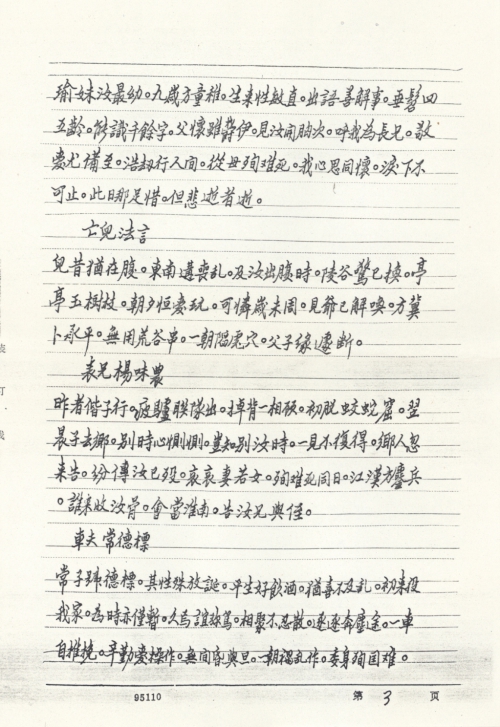 瑜妹汝最幼。九歲方童稚。生來性敏直。出語善解事。垂髫四
五齡。能識千餘字。父懷雖暫伊。見汝開胸次。呼我為長兄。敬
愛尤備至。浩劫行人間。從母殉難死。我心思同懷。淚下不
可止。此日那足惜。但悲逝者逝。
亡兒法言
兒昔猶在腹。東南遘喪乱。及汝出腹時。陵谷驚已換。亭
亭玉樹枝。朝夕恒愛玩。可憐歲未周。見爺已解喚。方冀
卜永平。無用荒谷串。一朝陷虎穴。父子緣遽斷。
表兄楊味農
昨者偕子行。疲驢聯隊出。掉背一相碩。初脫蛟蛇窟。翌
晨子去鄉。別時心惻惻。豈知別汝時。一見不復得。鄉人忽
来告。紛傳汝已歿。哀哀妻若女。殉難死同日。江漢方鏖兵
。誰来收汝骨。會當淮南。告汝兄與侄。
車夫常德標
常子號德標。其性殊放誕。平生好飲酒。猶喜不及乱。初来役
我家。為時亦僅暫。久焉誼彌篤。相聚不忍散。逐逐奔塵途。一車
自推挽。辛勤愛操作。無間昏與旦。一朝禍乱作。委身殉困难。
95110
第 3 页